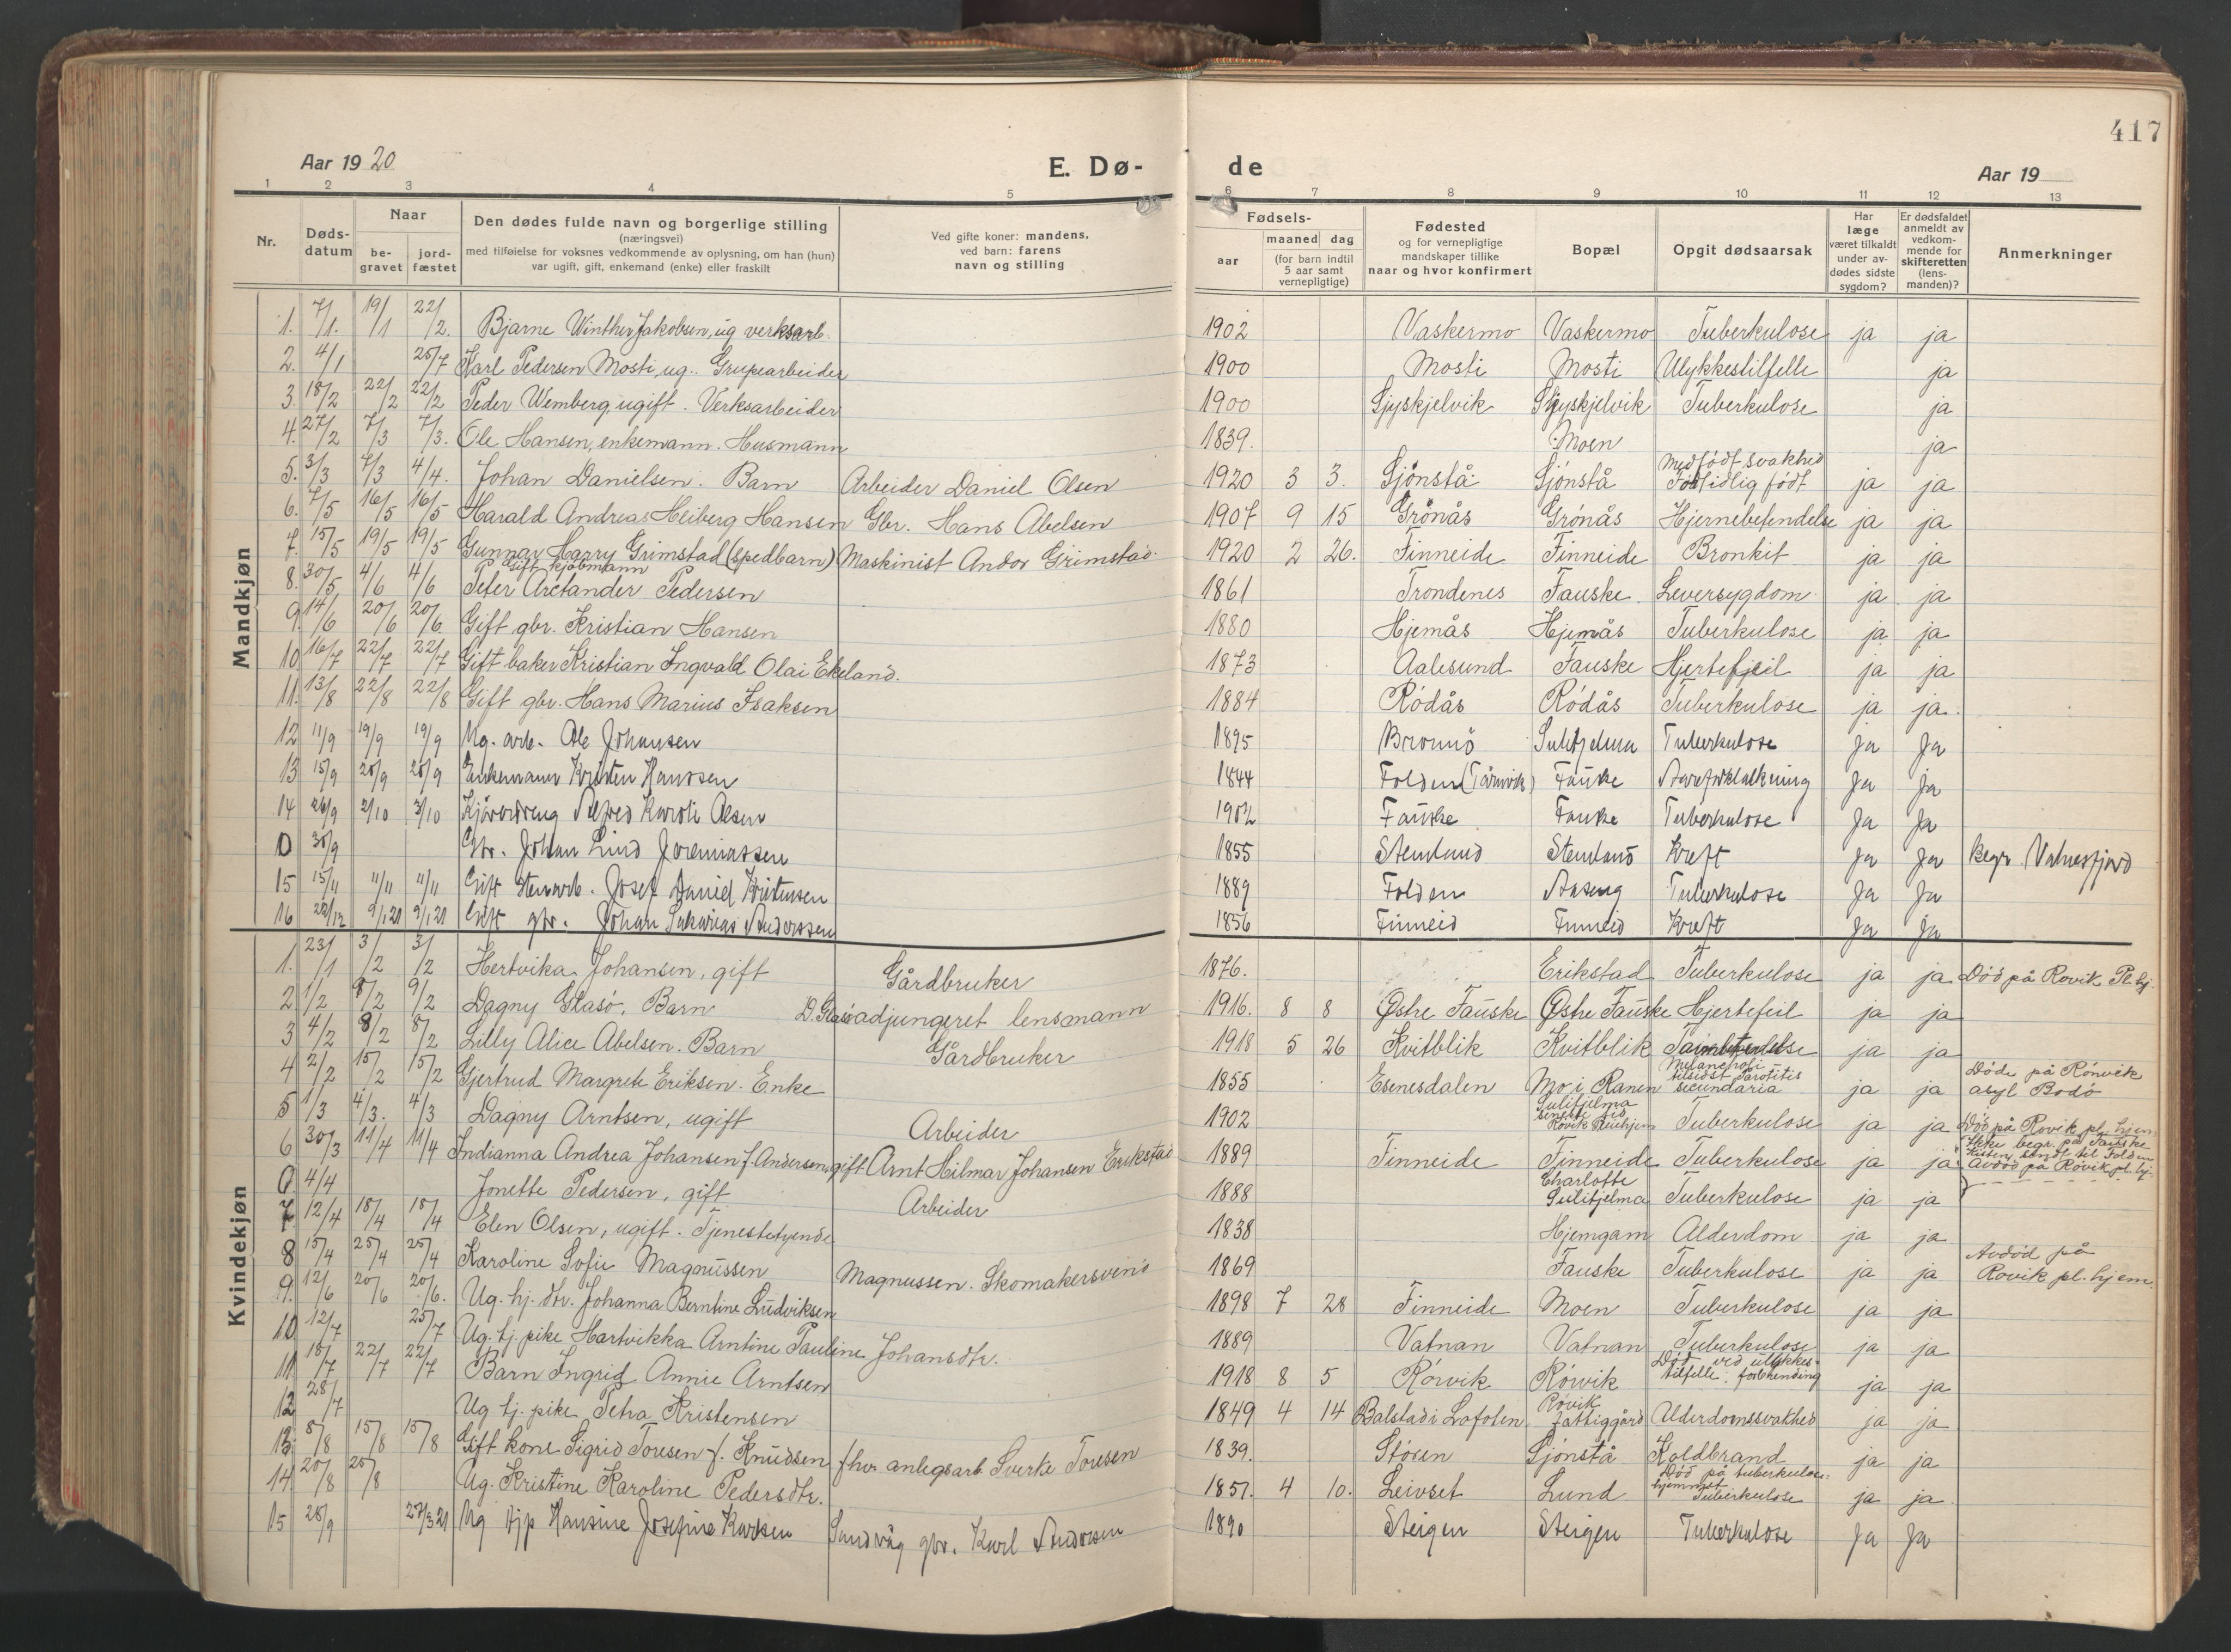 417
Aar 1920 E. Dø- de Aar 19
1 2 3 4 5 6 7 8 9 10 11 12 13
Nr. Døds-datum Naar be-gravet jord-fæstet Den dødes fulde navn og borgerlige stilling (næringsvei) med tilføielse for voksnes vedkommende av oplysning, om han (hun) var ugift, gift, enkemand (enke) eller fraskilt Ved gifte koner: mandens, ved barn: farens navn og stilling Fødsels- aar maaned dag (for barn indtil 5 aar samt vernepligtige) Fødested og for vernepligtige mandskaper tillike naar og hvor konfirmert Bopæl Opgit dødsaarsak Har læge været tilkaldt under av-dødes sidste sygdom? Er dødsfaldet anmeldt av vedkom-mende for skifteretten (lens-manden)? Anmerkninger
Mandkjøn
1. 7/1. 19/1 22/2. Bjarne Winther Jakobsen, ug verksarb. 1902 Vaskermo Vaskermo Tuberkulose ja ja
2. 4/1 25/7 Karl Pedersen Mosti, ug. Grupearbeider 1900 Mosti Mosti Ulykkestilfelle ja
3. 18/2 22/2 22/2 Peder Wemberg ugift. Verksarbeider 1900 Sjyskjelvik Sjyskjelvik Tuberkulose ja
4. 27/2 7/3 7/3. Ole Hansen, enkemann. Husmann 1839. Moen ja
5. 3/3 7/3 4/4. Johan Danielsen. Barn Arbeider Daniel Olsen 1920 3 3. Sjönstå Sjönstå Medfödt svakhed Fortidlig födt ja ja
6. 7/5 16/5 16/5 Harald Andreas Heiberg Hansen Gbr. Hans Abelsen 1907 9 15 Grönås Grönås Hjernebetendelse ja ja
7. 15/5 19/5 19/5 Gunnar Harry Grimstad (spedbarn) Maskinist Andor Grimstad. 1920 2 26. Finneide Finneide Bronkit ja ja
8. 30/5 4/6 4/6 Gift kjöbmann Peter Arctander Pedersen 1861 Trondenes Fauske Leversygdom ja ja
9 14/6 20/6 20/6 Gift gbr. Kristian Hansen 1880 Hjemås Hjemås Tuberkulose ja ja
10 16/7 22/7 22/7 Gift baker Kristian Ingvald Olai Ekeland. 1873 Aalesund Fauske Hjertefeil ja ja
11. 13/8 22/8 22/8 Gift gbr. Hans Marius Isaksen 1884 Rödås Rödås Tuberkulose ja ja.
12 11/9 19/9 19/9 Ug. arb. Ole Johansen 1895 Brönnö Sulitjelma Tuberkulose Ja Ja
13 15/9 26/9 26/9 Enkemann Kristen Hanssen 1844 Folden (Tårnvik) Fauske Aareforkalkning Ja Ja
14 26/9 2/10 3/10 Alfred Karoli Olsen 1902 Fauske Fauske Tuberkulose Ja Ja
0 30/9 Gbr. Johan Lind Jeremiassen 1855 Stemland Stemland Kreft Ja Ja begr. Valnesfjord
15 11/11 11/11 Gift stenarb. Josef Daniel Kristensen 1889 Folden Tuberkulose Ja Ja
16 22/12 9/1 21 9/1 21 Gift gbr. Johan Sakarias Anderssen 1856 Finneid Finneid Kreft Ja Ja
Kvindekjøn
1. 23/1 3/2 3/2 Hertvika Johansen, gift Gårdbruker 1876. Erikstad Tuberkulose ja ja Död på Rovik Pl. hj.
2 1/2 8/2 9/2 Dagny Glasö. Barn D. Glasö adjungeret lensmann 1916. 8 8 Østre Fauske Østre Fauske Hjertefeil ja ja
3 4/2 8/2 8/2 Lilly Alice Abelsen. Barn Gårdbruker 1918 5 26 Kvitblik Kvitblik ja ja
4 2/2 15/2 15/2 Gjertrud Margrete Eriksen. Enke 1855 Esenesdalen Mo i Ranen Melancholi tilsidst Parotitis secundaria ja ja Döde på Rönvik asyl Bodö
5 1/3 4/3. 4/3 Dagny Arntsen, ugift Arbeider 1902 Sulitjelma senest Rövik Tuberkulose ja ja Död på Rovik pl. hjem
6 30/3 11/4 11/4 Indianna Andrea Johansen f. Andersen, gift Arnt Hilmar Johansen Erikstad 1889 Finneide Finneide Tuberkulose ja ja Ikke begr. på Fauske Kisten sendt til Folden Avdöd på Rövik pl. hj.
0 4/4 Jonette Pedersen, gift Arbeider 1888 Charlotte Sulitjelma Tuberkulose ja ja
7. 12/4 18/4 18/4 Elen Olsen, ugift. Tjenestetyende 1838 Hjemgam Alderdom ja ja
8 15/4 25/4 25/4 Karoline Sofie Magnussen Magnussen. Skomakersvend 1869 Fauske Tuberkulose ja ja Avdöd på Rovik pl. hjem
9. 12/6 20/6 20/6. Ug. hj. dtr. Johanna Berntine Ludviksen 1898 7 28 Finneide Moen Tuberkulose ja ja
10 12/7 25/7 Ug. tj. pike Hartvikka Arntine Pauline Johansdtr. 1889 Vatnan Vatnan Tuberkulose ja ja
11 18/7 22/7 22/7 Barn Ingrid Annie Arntsen 1918 8 5 Rörvik Rörvik Död ved ulykkes-tilfelle. forbrending ja ja
12 28/7 Ug tj. pike Petra Kristensen 1849 4 14 Balstad i Lofoten Rövik fattiggård Alderdomssvakhed ja ja
13. 8/8 15/8 15/8 Gift kone Sigrid Toresen f. Knudsen fhv. anlegsarb. Sverke Toresen 1839. Stören Sjönstå Koldbrand ja ja
14. 20/8 25/8 Ug. Kristine Karoline Pedersdtr. 1857. 4 10. Leivset Lund Död på tuberkulosehjemmet Tuberkulose ja ja
15 28/9 27/3 21 Ug tjp Hansine Josefine Karlsen Sandvåg gbr. Karl Andersen 1890 Steigen Steigen Tuberkulose Ja Ja